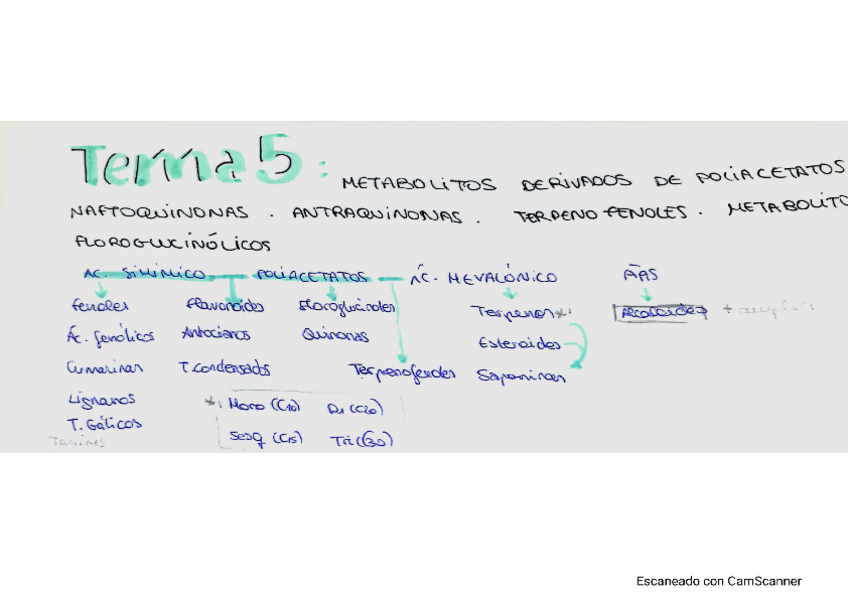 Tema 5: METABOLITOS DERIVADOS DE POLIACETATOS
NAFTOQUINONAS. ANTRAQUINONAS. TERPENOFENOLES. METABOLITO
FLOROGLUCINÓLICOS
AC. SIKIMICO POLIACETATOS ÁC. MEVALÓNICO AAS
Fenoles Flavonoides Floroglucinoles Terpenos *: Alcaloides +
Ác. fenólicos Antocianos Quinonas Esteroides
Cumarinas T. Condensados Terpenofenoles Saponinas
Lignanos *: Mono (C10) Di (C20)
T. Gálicos
Taninos Sesq (C15) Tri (C30)
Escaneado con CamScanner